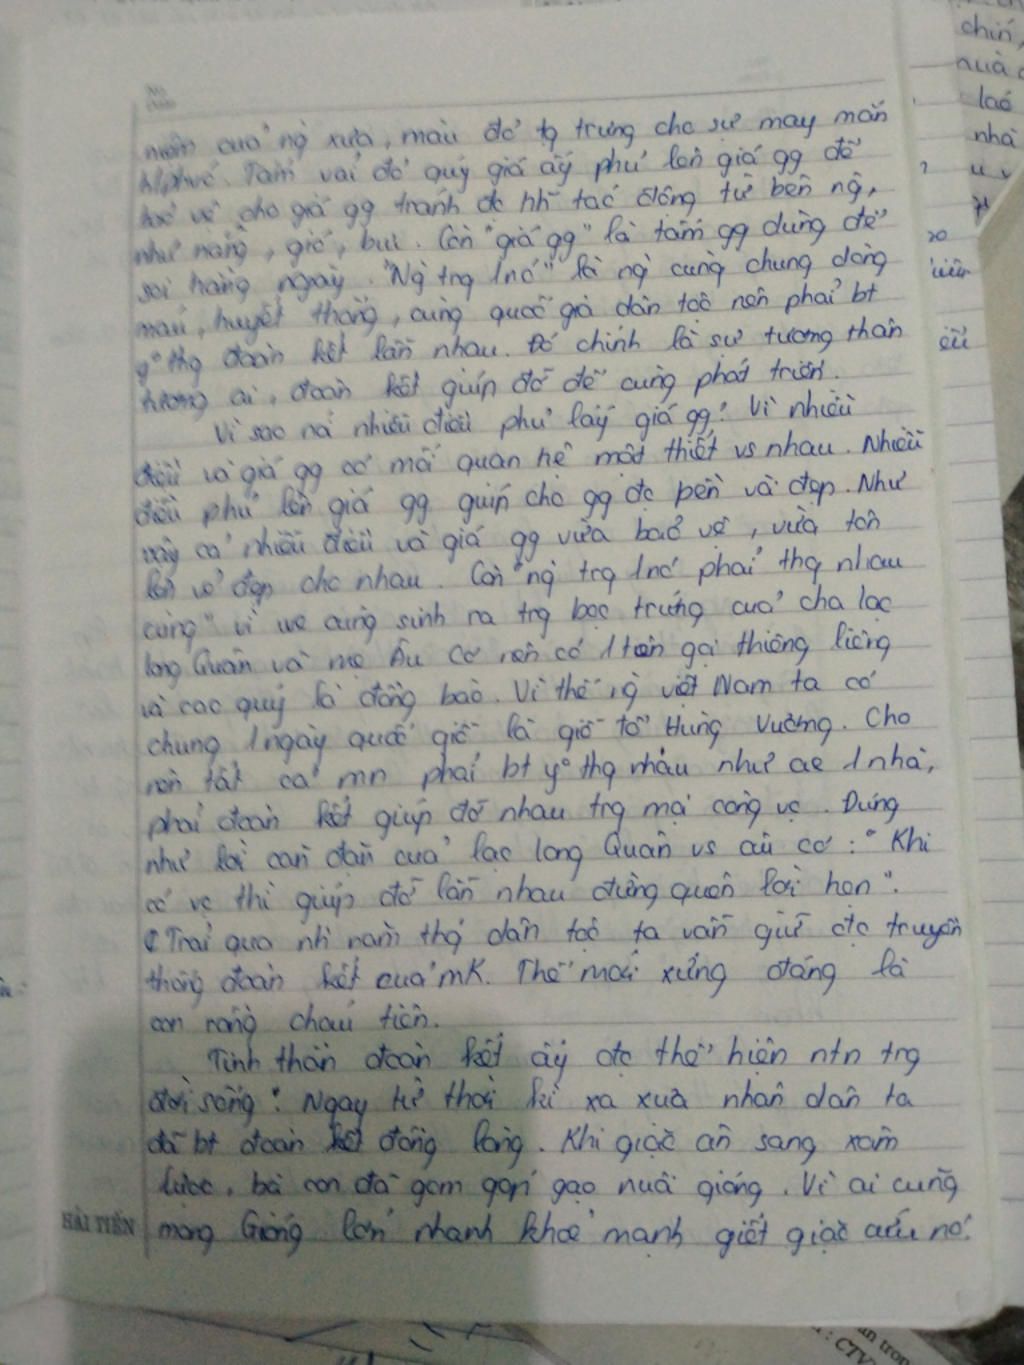 niệm của ng` xưa, màu đỏ tg trưng cho sự may mắn
h/phúc. Tấm vải đỏ quý giá ấy phủ lên giá gg để
bảo vệ cho giá gg tránh đc nh~ tác động từ bên ng`,
như nắng, gió, bụi. Còn "giá gg" là tấm gg dùng để
soi hàng ngày. "Ng` trg 1 nc" là ng` cùng chung dòng
máu, huyết thống, cùng quốc gia dân tộc nên phải bt
y° thg đoàn kết lẫn nhau. Đó chính là sự tương thân
tương ái, đoàn kết giúp đỡ để cùng phát triển.
Vì sao nói nhiễu điều phủ lấy giá gg? Vì nhiễu
điều và giá gg có mối quan hệ mật thiết vs nhau. Nhiễu
điều phủ lên giá gg giúp cho gg đc bền và đẹp. Như
vậy cả nhiễu điều và giá gg vừa bảo vệ, vừa tôn
lên vẻ đẹp cho nhau. Còn "ng` trg 1 nc phải thg nhau
cùng" vì cùng sinh ra trg bọc trứng của cha lạc
long Quân và mẹ Âu Cơ nên có 1 tên gọi thiêng liêng
và cao quý là đồng bào. Vì thế ng` việt Nam ta có
chung 1 ngày quốc giỗ là giỗ tổ Hùng Vương. Cho
nên tất cả mn phải bt y° thg nhau như ae 1 nhà,
phải đoàn kết giúp đỡ nhau trg mọi công vc. Đúng
như lời căn dặn của lạc long Quân vs âu cơ: "Khi
có vc thì giúp đỡ lẫn nhau đừng quên lời hẹn".
Trải qua nh` năm thg dân tộc ta vẫn giữ đc truyền
thống đoàn kết của mk. Thế mới xứng đáng là
con rồng cháu tiên.
Tinh thần đoàn kết ấy đc thể hiện ntn trg
đời sống? Ngay từ thời kì xa xưa nhân dân ta
đã bt đoàn kết đồng lòng. Khi giặc ân sang xâm
lược, bà con đã gom góp gạo nuôi gióng. Vì ai cũng
mong Gióng lớn nhanh khoẻ mạnh giết giặc cứu nc.
HẢI TIẾN
chín,
lao
nhà